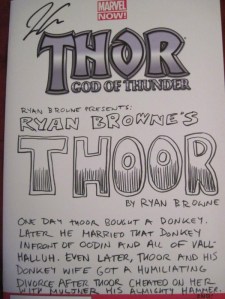 MARVEL
NOW!
THOR
GOD OF THUNDER
RYAN BROWNE PRESENTS:
RYAN BROWNE'S
THOOR
BY RYAN BROWNE
ONE DAY THOOR BOUGHT A DONKEY.
LATER HE MARRIED THAT DONKEY
INFRONT OF OODIN AND ALL OF VALL-
HALLUH. EVEN LATER, THOOR AND HIS
DONKEY WIFE GOT A HUMILIATING
DIVORCE AFTER THOOR CHEATED ON HER
WITH MULJNER HIS ALMIGHTY HAMMER.